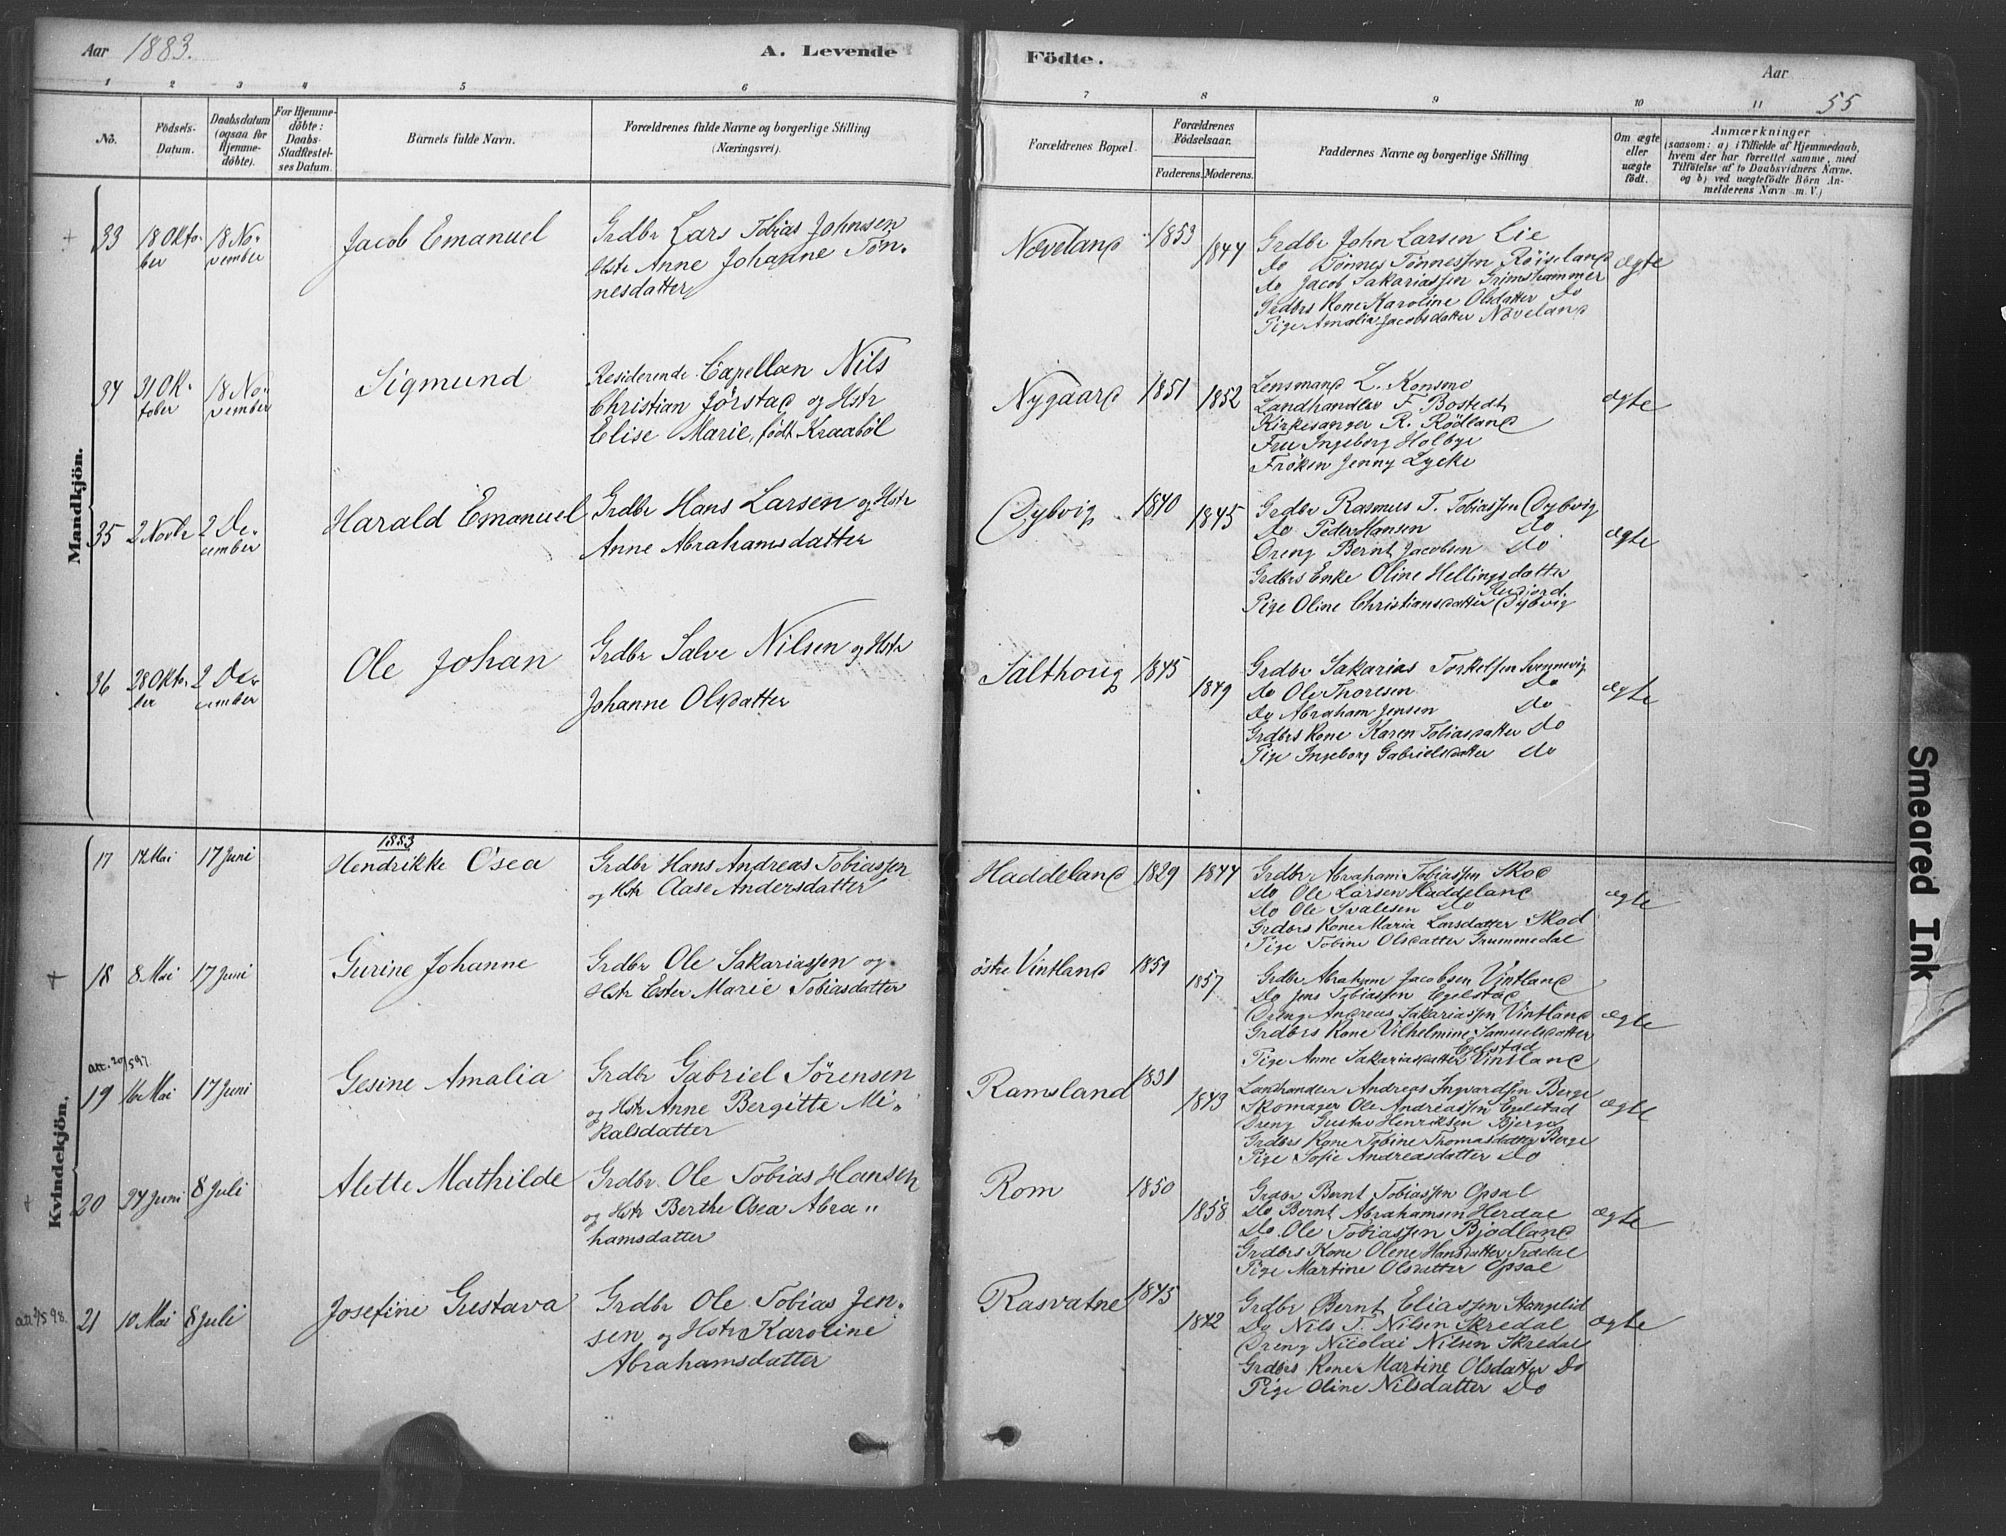 Aar 1883.
A. Levende
Födte.
Aar
55
1 2 3 4 5 6 7 8 9 10 11
No.
Födsels-Datum.
Daabsdatum (ogsaa for Hjemme-döbte).
For Hjemme-döbte: Daabs-Stadfæstel-ses Datum.
Barnets fulde Navn.
Forældrenes fulde Navne og borgerlige Stilling (Næringsvei).
Forældrenes Bopæl.
Forældrenes Födselsaar.
Faderens. Moderens.
Faddernes Navne og borgerlige Stilling
Om ægte eller uægte födt.
Anmærkninger (saasom: a) i Tilfælde af Hjemmedaab, hvem der har forrettet samme, med Tilföielse af to Daabsvidners Navne. og b) ved uægtefödte Börn An-melderens Navn m. V.)
Mandkjön.
33 18 Okto-ber 18 No-vember Jacob Emanuel
Grdbr Lars Tobias Johnsen
Hstr Anne Johanne Tøn-
nesdatter
Nøveland 1853 1844
Grdbr John Larsen Lie
do Tønnes Tønnessen Röiseland
do Jacob Sakariassen Grimshammer
Grdbrs Kone Karoline Olsdatter do
Pige Amalia Jacobsdatter Nøveland
ægte
34 31 Ok-tober 18 No-vember Sigmund
Residerende Capellan Nils
Christian Jörstad og Hstr
Elise Marie, født Kraaböl
Nygaard 1851 1852
Lensmand L. Konsmo
Landhandler F. Bostedt
Kirkesanger R. Rödland
Fru Ingeborg Holbye
Frøken Jenny Lycke
ægte
35 2 Novbr 2 De-cember Harald Emanuel
Grdbr Hans Larsen og Hstr
Anne Abrahamsdatter
Dybvig 1840 1845
Grdbr Rasmus T. Tobiassen Dybvig
do Peder Hansen do
Dreng Bernt Jacobsen do
Grdbrs Enke Oline Hellingsdatter
Pige Oline Christiansdatter Dybvig
ægte
36 28 Okto-ber 2 De-cember Ole Johan
Grdbr Salve Nilsen og Hstr
Johanne Olsdatter
Salthoug 1845 1849
Grdbr Sakarias Torkelsen Svennevig
do Ole Thoresen do
do Abraham Jensen do
Grdbrs Kone Karen Tobiasdatter do
Pige Ingeborg Gabrielsdatter do
ægte
Kvindekjön.
1883
17 14 Mai 17 Juni Hendrikke Osea
Grdbr Hans Andreas Tobiassen
og Hstr Aase Andersdatter
Haddeland 1829 1844
Grdbr Abraham Tobiassen Skod
do Ole Larsen Haddeland
do Ole Svalesen do
Grdbrs Kone Maria Larsdatter Skod
Pige Tobine Olsdatter Grummedal
ægte
18 8 Mai 17 Juni Gurine Johanne
Grdbr Ole Sakariassen og
Hstr Ester Marie Tobiasdatter
østre Vintland 1851 1857
Grdbr Abraham Jacobsen Vintland
do Jens Tobiassen Egelstad
Dreng Andreas Sakariassen Vintland
Grdbrs Kone Vilhelmine Samuelsdatter
Egelstad
Pige Anne Sakariasdatter Vintland
ægte
att. 20/5 97.
19 16 Mai 17 Juni Gesine Amalia
Grdbr Gabriel Sörensen
og Hstr Anne Bergitte Mi-
kalsdatter
Ramsland 1831 1843
Landhandler Andreas Ingvardsen Berge
Skomager Ole Andreassen Egelstad
Dreng Gustav Henriksen Bjerga
Grdbrs Kone Tobine Thomasdatter Berge
Pige Sofie Andreasdatter do
ægte
20 24 Juni 8 Juli Alette Mathilde
Grdbr Ole Tobias Hansen
og Hstr Berthe Osea Abra-
hamsdatter
Rom 1850 1858
Grdbr Bernt Tobiassen Opsal
do Bernt Abrahamsen Herdal
do Ole Tobiassen Bjodland
Grdbrs Kone Olene Hansdatter Trædal
Pige Martine Olsdatter Opsal
ægte
21 10 Mai 8 Juli Josefine Gustava
Grdbr Ole Tobias Jen-
sen og Hstr Karoline
Abrahamsdatter
Rasvatne 1845 1842
Grdbr Bernt Eliassen Stangelid
do Nils T. Nilsen Skredal
Dreng Nicolai Nilsen Skredal
Grdbrs Kone Martine Olsdatter do
Pige Oline Nilsdatter do
ægte
Smeared Ink